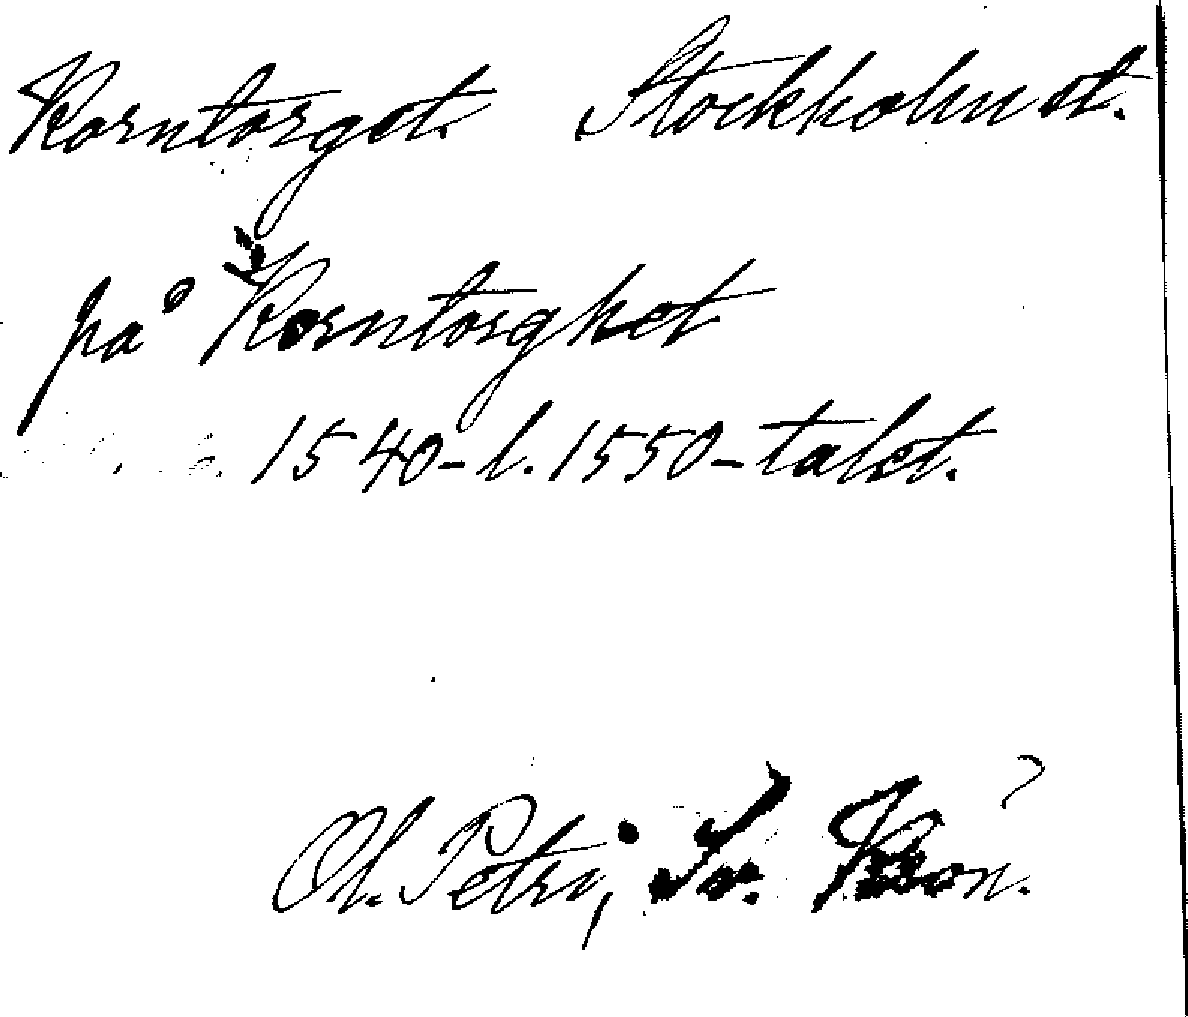 Korntorget. Stockholm st.
på Korntorghet
1540- l. 1550-talet.
Ol. Petri, Sv. Krön.